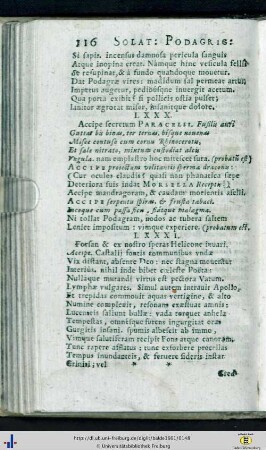 116 SOLAT: PODAGRIC:
Si sapis, incensus damnosa pericula signans
Atque inopina eras. Namque hinc vesicula fellis
Se resupinat, & à fundo quandoque mouetur.
Dat Podagræ vires: madidum sal permeat artus,
Impetus augetur, pedibusque inuergit acetum.
Qua porta exibit? si pollicis ostia pulset;
Ianitor ægrotat miser, insanitque dolore.
LXXX.
Accipe secretum PARACELSI. Fusilis auri
Guttas bis binas, ter ternas, bisque nouenas
Misce centuſis cum cornu Rhinocerotis,
Et sale nitrato, minimum custodiat oleu
Vngula. nam emplastro hoc mitescet fura. (probatũ est)
ACCIPE proiectum volitantis sperma draconis:
(Cur oculos claudis? quali nan phanatica sæpe
Deteriora suis indat MORBELLA Receptis?)
Accipe mandragoram, & caudam morientis aselli.
ACCIPE serpentis spiras, & frusta tabaci.
Incoque cum passa ficu, fiatque malagma.
Ni tollat Podagram, nodos ac tubera saltem
Leniet impositum: vimque experiere. (probatum est.
LXXXI.
Forsan & ex nostro speras Helicone iuuari.
Accipe. Castalii fontis communibus vndis
Vix distant, absente Deo: nec stagna mouentur
Interius. nihil inde bibet cæleste Poëta.
Nullaque mirandi virtus est pectora Vatum,
Lymphæ vulgaris. Simul autem intrauit Apollo,
Et trepidas commouit aquas vertigine, & alto
Numine compleuit, resonant exæstuat amnis:
Lucentis saliunt bullæ: vada torquet anhela
Tempestas, omnisque furens ingurgitat eras
Gurgitis insani. spumis albescit ab immo,
Vimque salutiferam recipit Fons atque canoram,
Tunc rapere afflatus: tunc exsorbere procellas
Tempus inundanteis, & feruere sideris instar
Criniti; vel * *
Cred-
http://dl.ub.uni-freiburg.de/diglit/balde1661/0148
© Universitätsbibliothek Freiburg